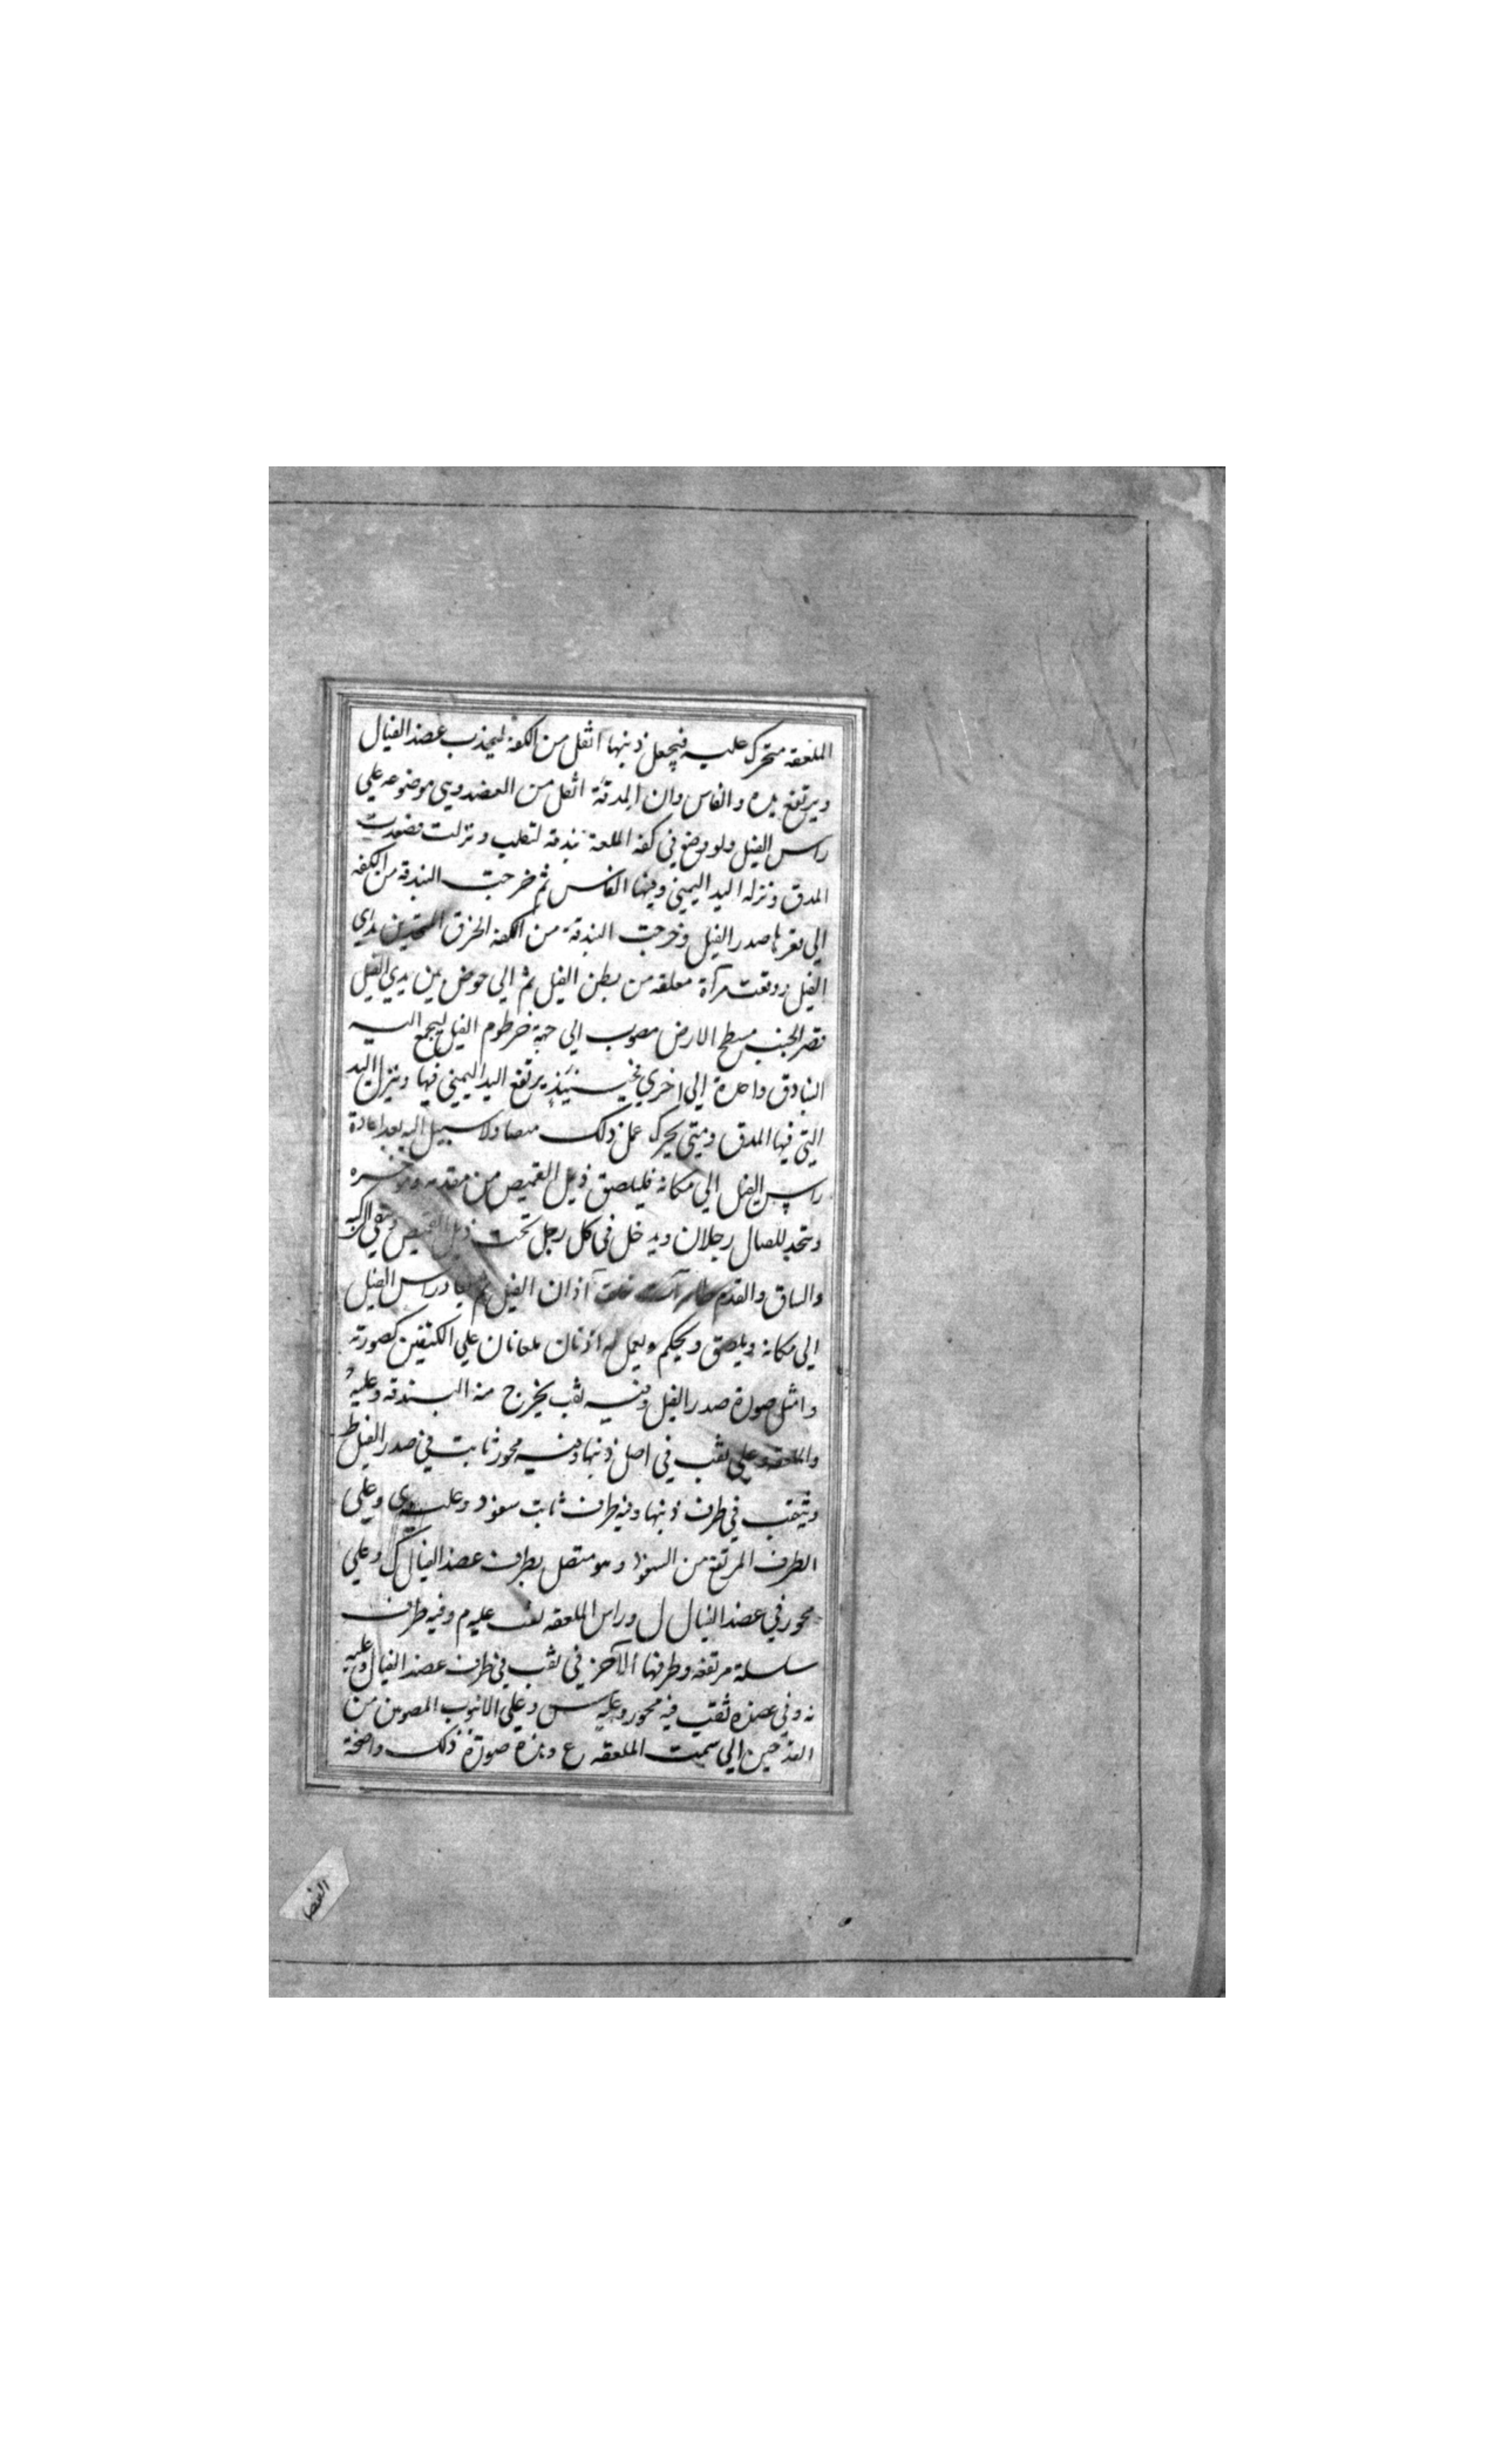 الملعقه متحرك عليه فيجعل ذنبها اثقل من الكفة ليجذب عضد الفيال
ويرتفع يده والفاس وان المدقة اثقل من العضد وهي موضوعه علي
راس الفيل ولو وضع في كفه الملعقة بندقة لتعلب ونزلت فصعدت
المدق ونزله اليد اليمني وفيها الفاس ثم خرجت البندقه من الكفه
الي مقرها صدر الفيل وخرجت البندقة من الكفه الخرق بدي
الفيل ووقعت مرآة معلقه من بطن الفيل ثم الي حوض بين يدي الفيل
قصر الجنب مسطح الارض مصوب الي جهة خرطوم الفيل ليجمع اليه
البنادق واحدة الي اخري فحينئذ يرتفع اليد اليمني فيها وينزل اليد
التي فيها المدق ومتي يحرك عمل ذلك ولا سبيل اليه بعد اعادة
راس الفيل الي مكانه فليلصق ذيل القميص من مقدمه وموخره
ويتخذ للفيال رجلان ويدخل في كل رجل تحت ذيل القميص
والساق والقدم خلف آذان الفيل ثم يعاد راس الفيل
الي مكانه ويلصق ويحكم ويعمل له اذنان علي الكتفين كصورته
وامثل صورة صدر الفيل وفيه ثقب يخرج منه البندقه وعليه
والملعقه وعلي ثقب في اصل ذنبها وفيه محور ثابت في صدر الفيل ط
وثقب في طرف ذنبها وفيه طرف ثابت سفود وعليه ي وعلي
الطرف المرتفع من السفود وهو متصل بطرف عضد الفيال ك وعلي
محور في عضد الفيال ل وراس الملعقه ثقب عليه م وفيه طرف
سلسلة مرتفعه وطرفها الآخر في ثقب في طرف عضد الفيال وعليه
نه وفي عضده ثقب فيه محور وعليه س وعلي الانبوب المصوبن من
القدحين الي سمت الملعقه ع وهذه صورة ذلك واضحة